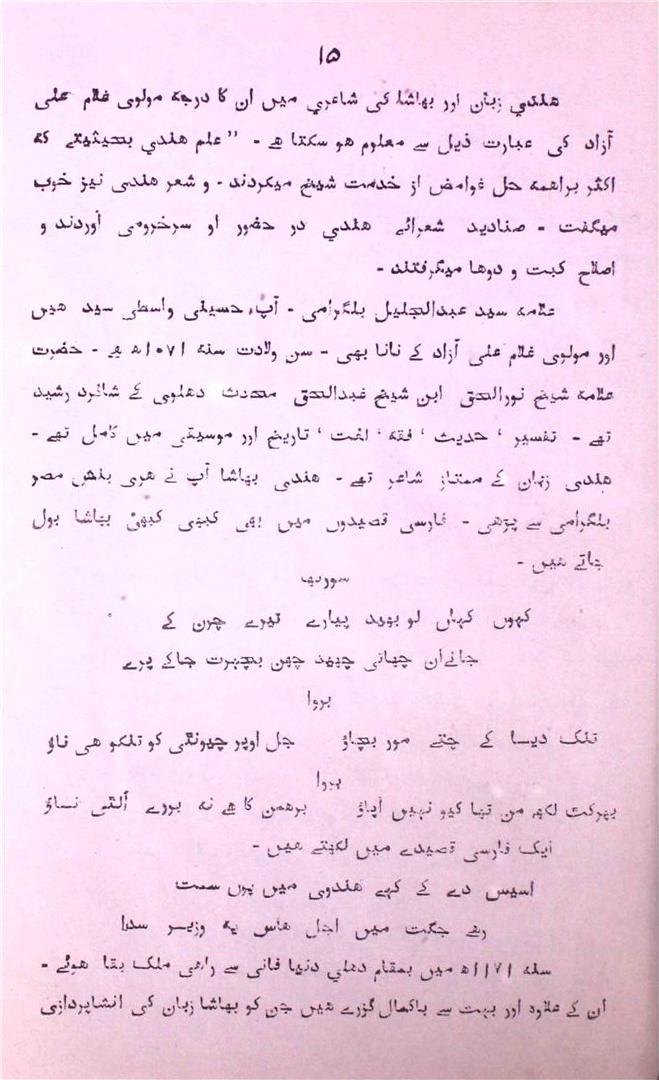 ۱۵
هندي زبان اور بھاشا کی شاعري میں ان کا درجہ مولوی غلام علی
آزاد کی عبارت ذیل سے معلوم ہو سکتا ہے - ” علم هندي بحیثیتے کہ
اکثر براهمہ حل غوامض از خدمت شیخ میکردند - و شعر هندی نیز خوب
میگفت - صنادید شعرائے هندي در حضور او سرخرومی آوردند و
اصلاح کبت و دوها میگرفتند -
علامہ سید عبدالجلیل بلگرامی - آپ حسینی واسطی سید ہیں
اور مولوی غلام علی آزاد کے نانا بھی - سن ولادت سنہ ۱۰۷۱ھ ہے - حضرت
علامہ شیخ نورالحق ابن شیخ عبدالحق محدث دهلوی کے شاگرد رشید
تھے - تفسیر ، حدیث ، فقہ ، لغت ، تاریخ اور موسیقی میں کامل تھے -
هندی زبان کے ممتاز شاعر تھے - هندی بھاشا آپ نے هری بنس مصر
بلگرامی سے پڑھی - فارسی قصیدوں میں بھی کبھی کبھی بھاشا بول
جاتے ہیں -
سورٹھ
کہوں کہاں لو بھید پیارے تیرے چرن کے
جانےان چھاتی چھید چھن بچھرت جاکے پرے
بروا
تلک دیسا کے چتے مور بچاؤ جل اوپر چیونٹی کو تلکو هی ناؤ
بروا
بھرکت لکھ من تھا کیو نہیں اپاؤ برهمن کا هے نہ بورے اُلٹی نساؤ
ایک فارسی قصیدے میں لکھتے ہیں -
اسیس دے کے کہے هندوی میں یوں سمت
رهے جگت میں اچل هاس یہ وزیر سدا
سنہ ۱۱۷۱ھ میں بمقام دهلي دنیا فانی سے راهی ملک بقا هوئے -
ان کے علاوہ اور بہت سے باکمال گزرے هیں جن کو بھاشا زبان کی انشاپردازی